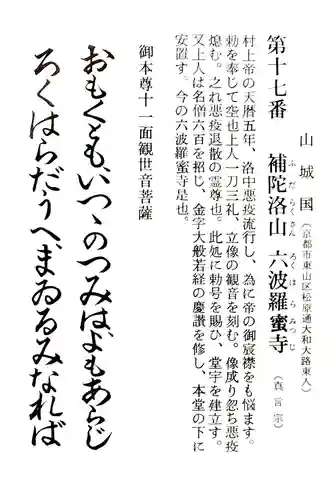 山城国（京都市東山区松原通大和大路東入）
第十七番 補陀洛山 六波羅蜜寺（真言宗）
ふだらくさん ろくはらみつじ
村上帝の天暦五年、洛中悪疫流行し、為に帝の御宸襟をも悩ます。
勅を奉じて空也上人一刀三礼、立像の観音を刻む。像成り忽ち悪疫
熄む。之れ悪疫退散の霊尊也。此処に勅号を賜ひ、堂宇を建立す。
又上人は名僧六百を招じ、金字大般若経の慶讃を修し、本堂の下に
安置す。今の六波羅蜜寺是也。
御本尊十一面観世音菩薩
おもくともいつゝのつみはよもあらじ
ろくはらだうへまゐるみなれば